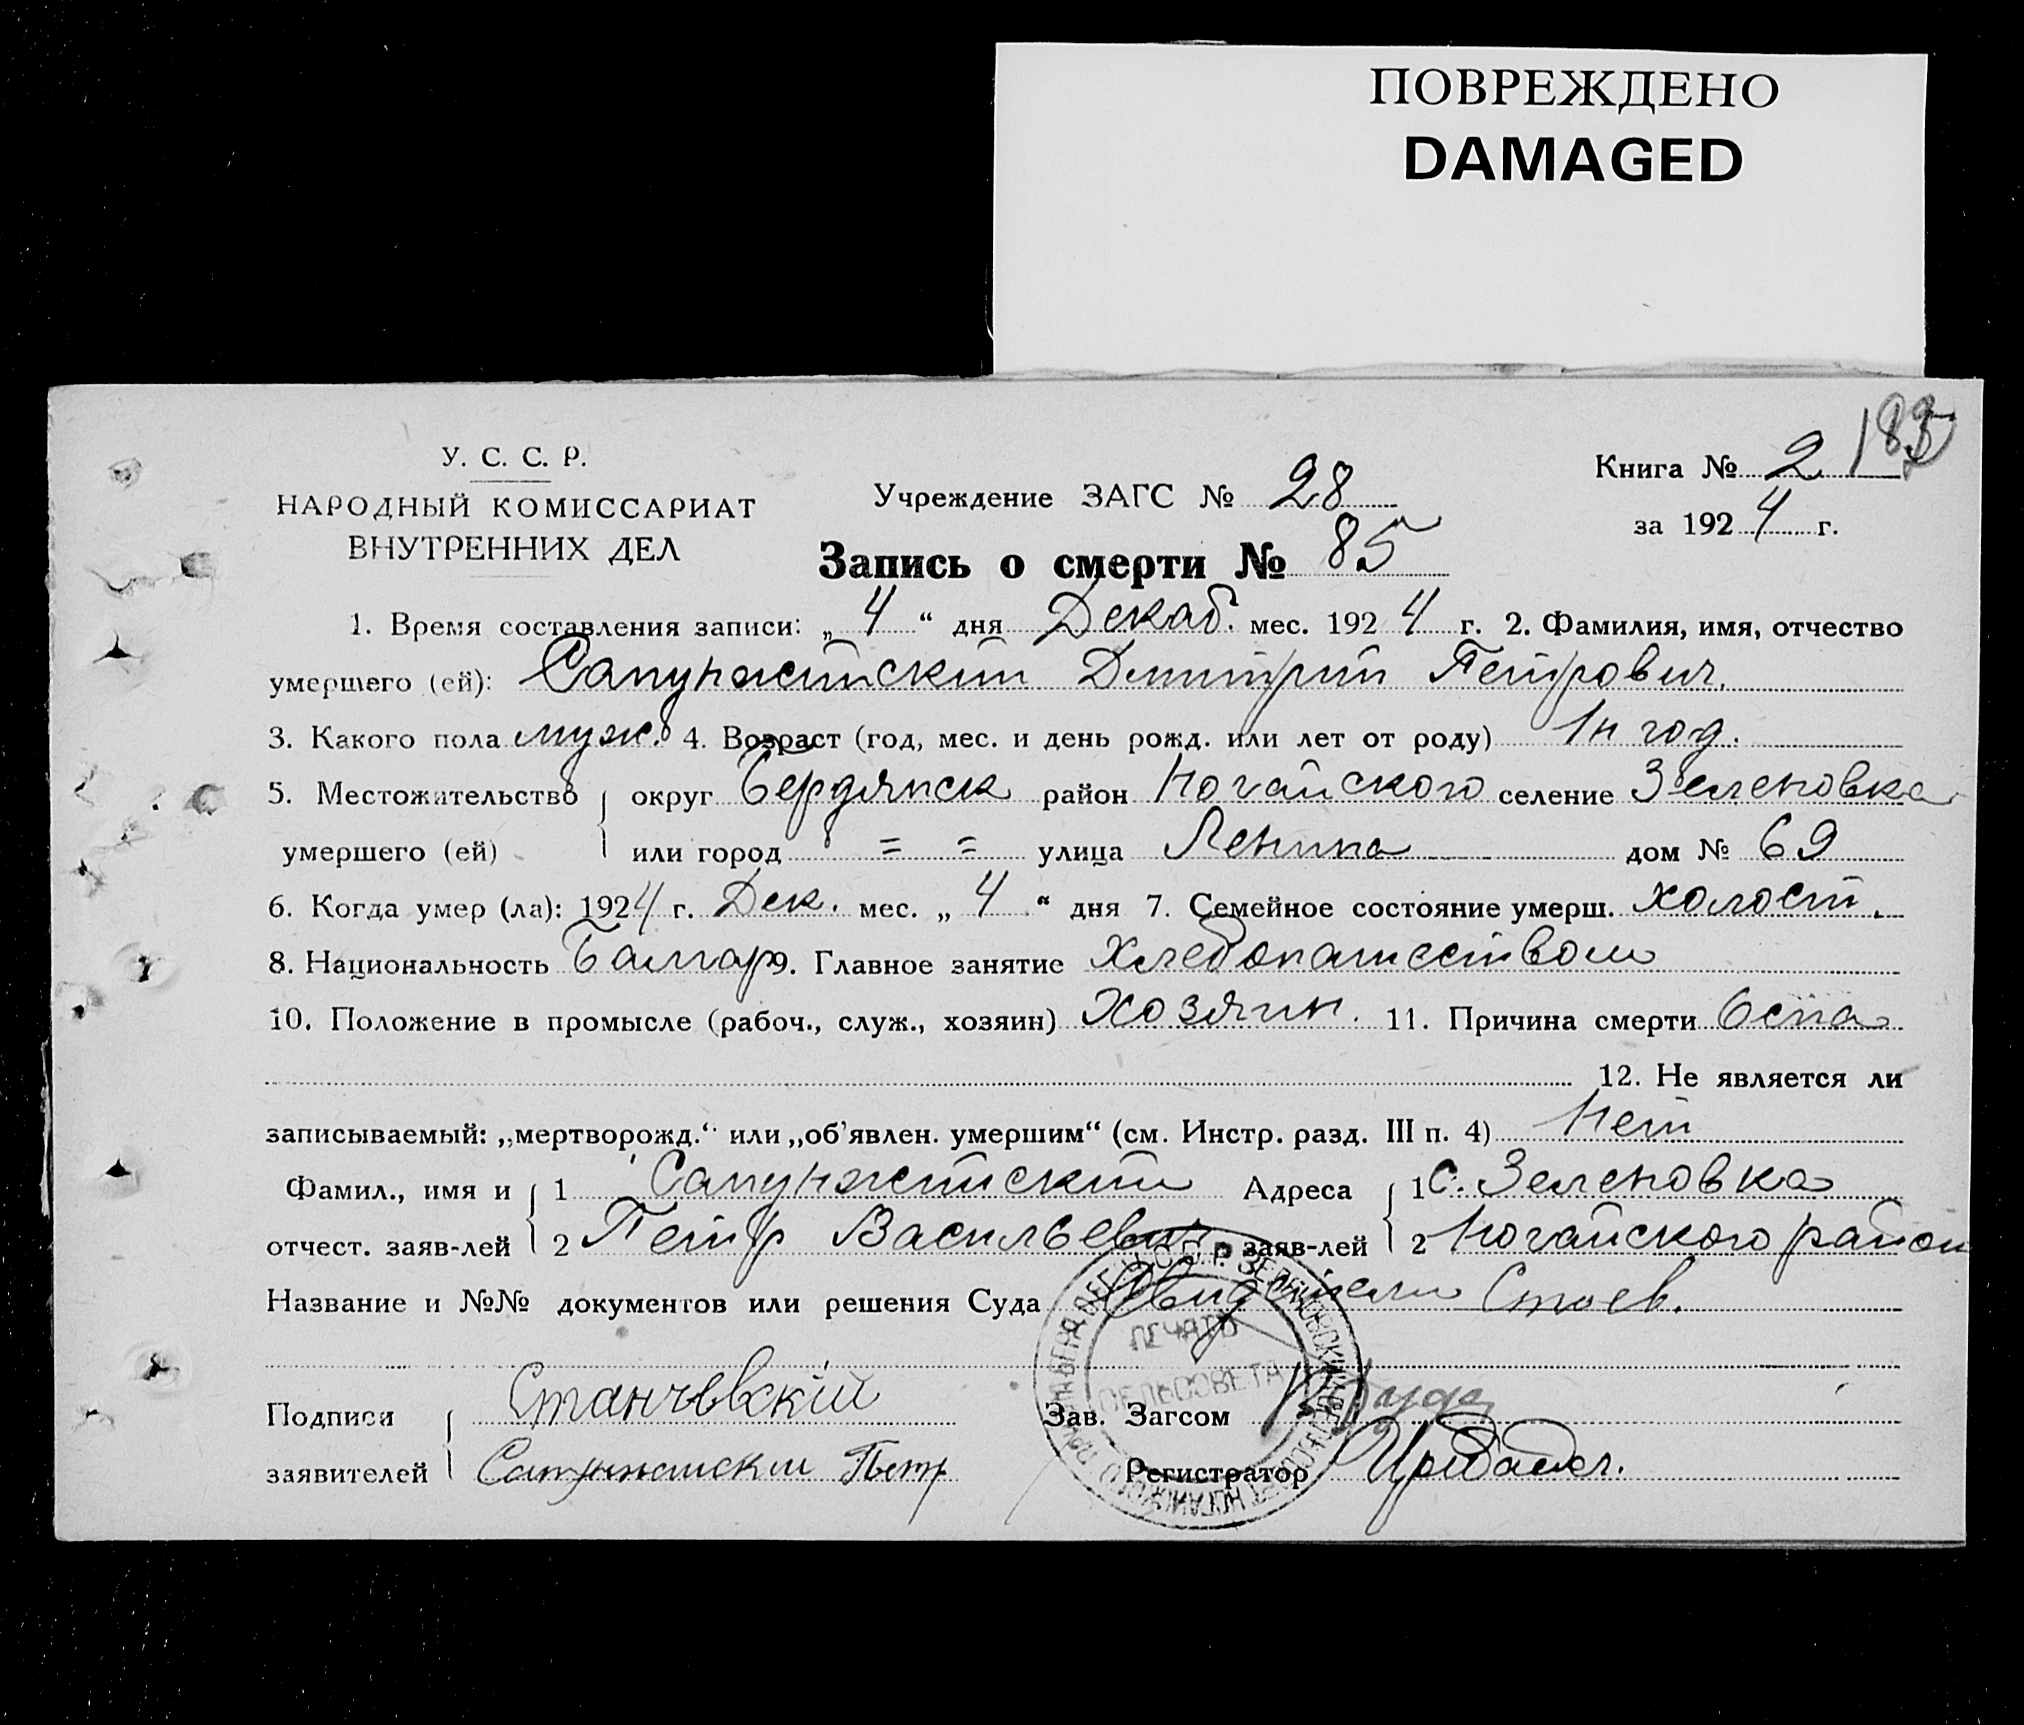 ПОВРЕЖДЕНО
DAMAGED
183
У. С. С. Р.
НАРОДНЫЙ КОМИССАРИАТ
ВНУТРЕННИХ ДЕЛ
Учреждение ЗАГС № 28
Книга № 2
за 1924 г.
Запись о смерти № 85
1. Время составления записи: „ 4 “ дня Декаб. мес. 1924 г. 2. Фамилия, имя, отчество
умершего (ей): Сапунжийский Дмитрий Петрович.
3. Какого пола муж. 4. Возраст (год, мес. и день рожд. или лет от роду) 1 год.
5. Местожительство округ Бердянск район Ногайского селение Зеленовка
умершего (ей) или город = = улица Ленина дом № 69
6. Когда умер (ла): 1924 г. Дек. мес. „ 4 “ дня 7. Семейное состояние умерш. холост.
8. Национальность Балгар 9. Главное занятие Хлебопашеством
10. Положение в промысле (рабоч., служ., хозяин) Хозяин. 11. Причина смерти Оспа
12. Не является ли
записываемый: „мертворожд.“ или „об’явлен. умершим“ (см. Инстр. разд. III п. 4) Нет
Фамил., имя и 1 Сапунжийский Адреса 1 с. Зеленовка
отчест. заяв-лей 2 Петр Васильевич заяв-лей 2 Ногайского район
Название и №№ документов или решения Суда Свидетели Стоев.
ПЕЧАТЬ
СЕЛЬСОВЕТА
Подписи Станчевскій Зав. Загсом
заявителей Петр Регистратор